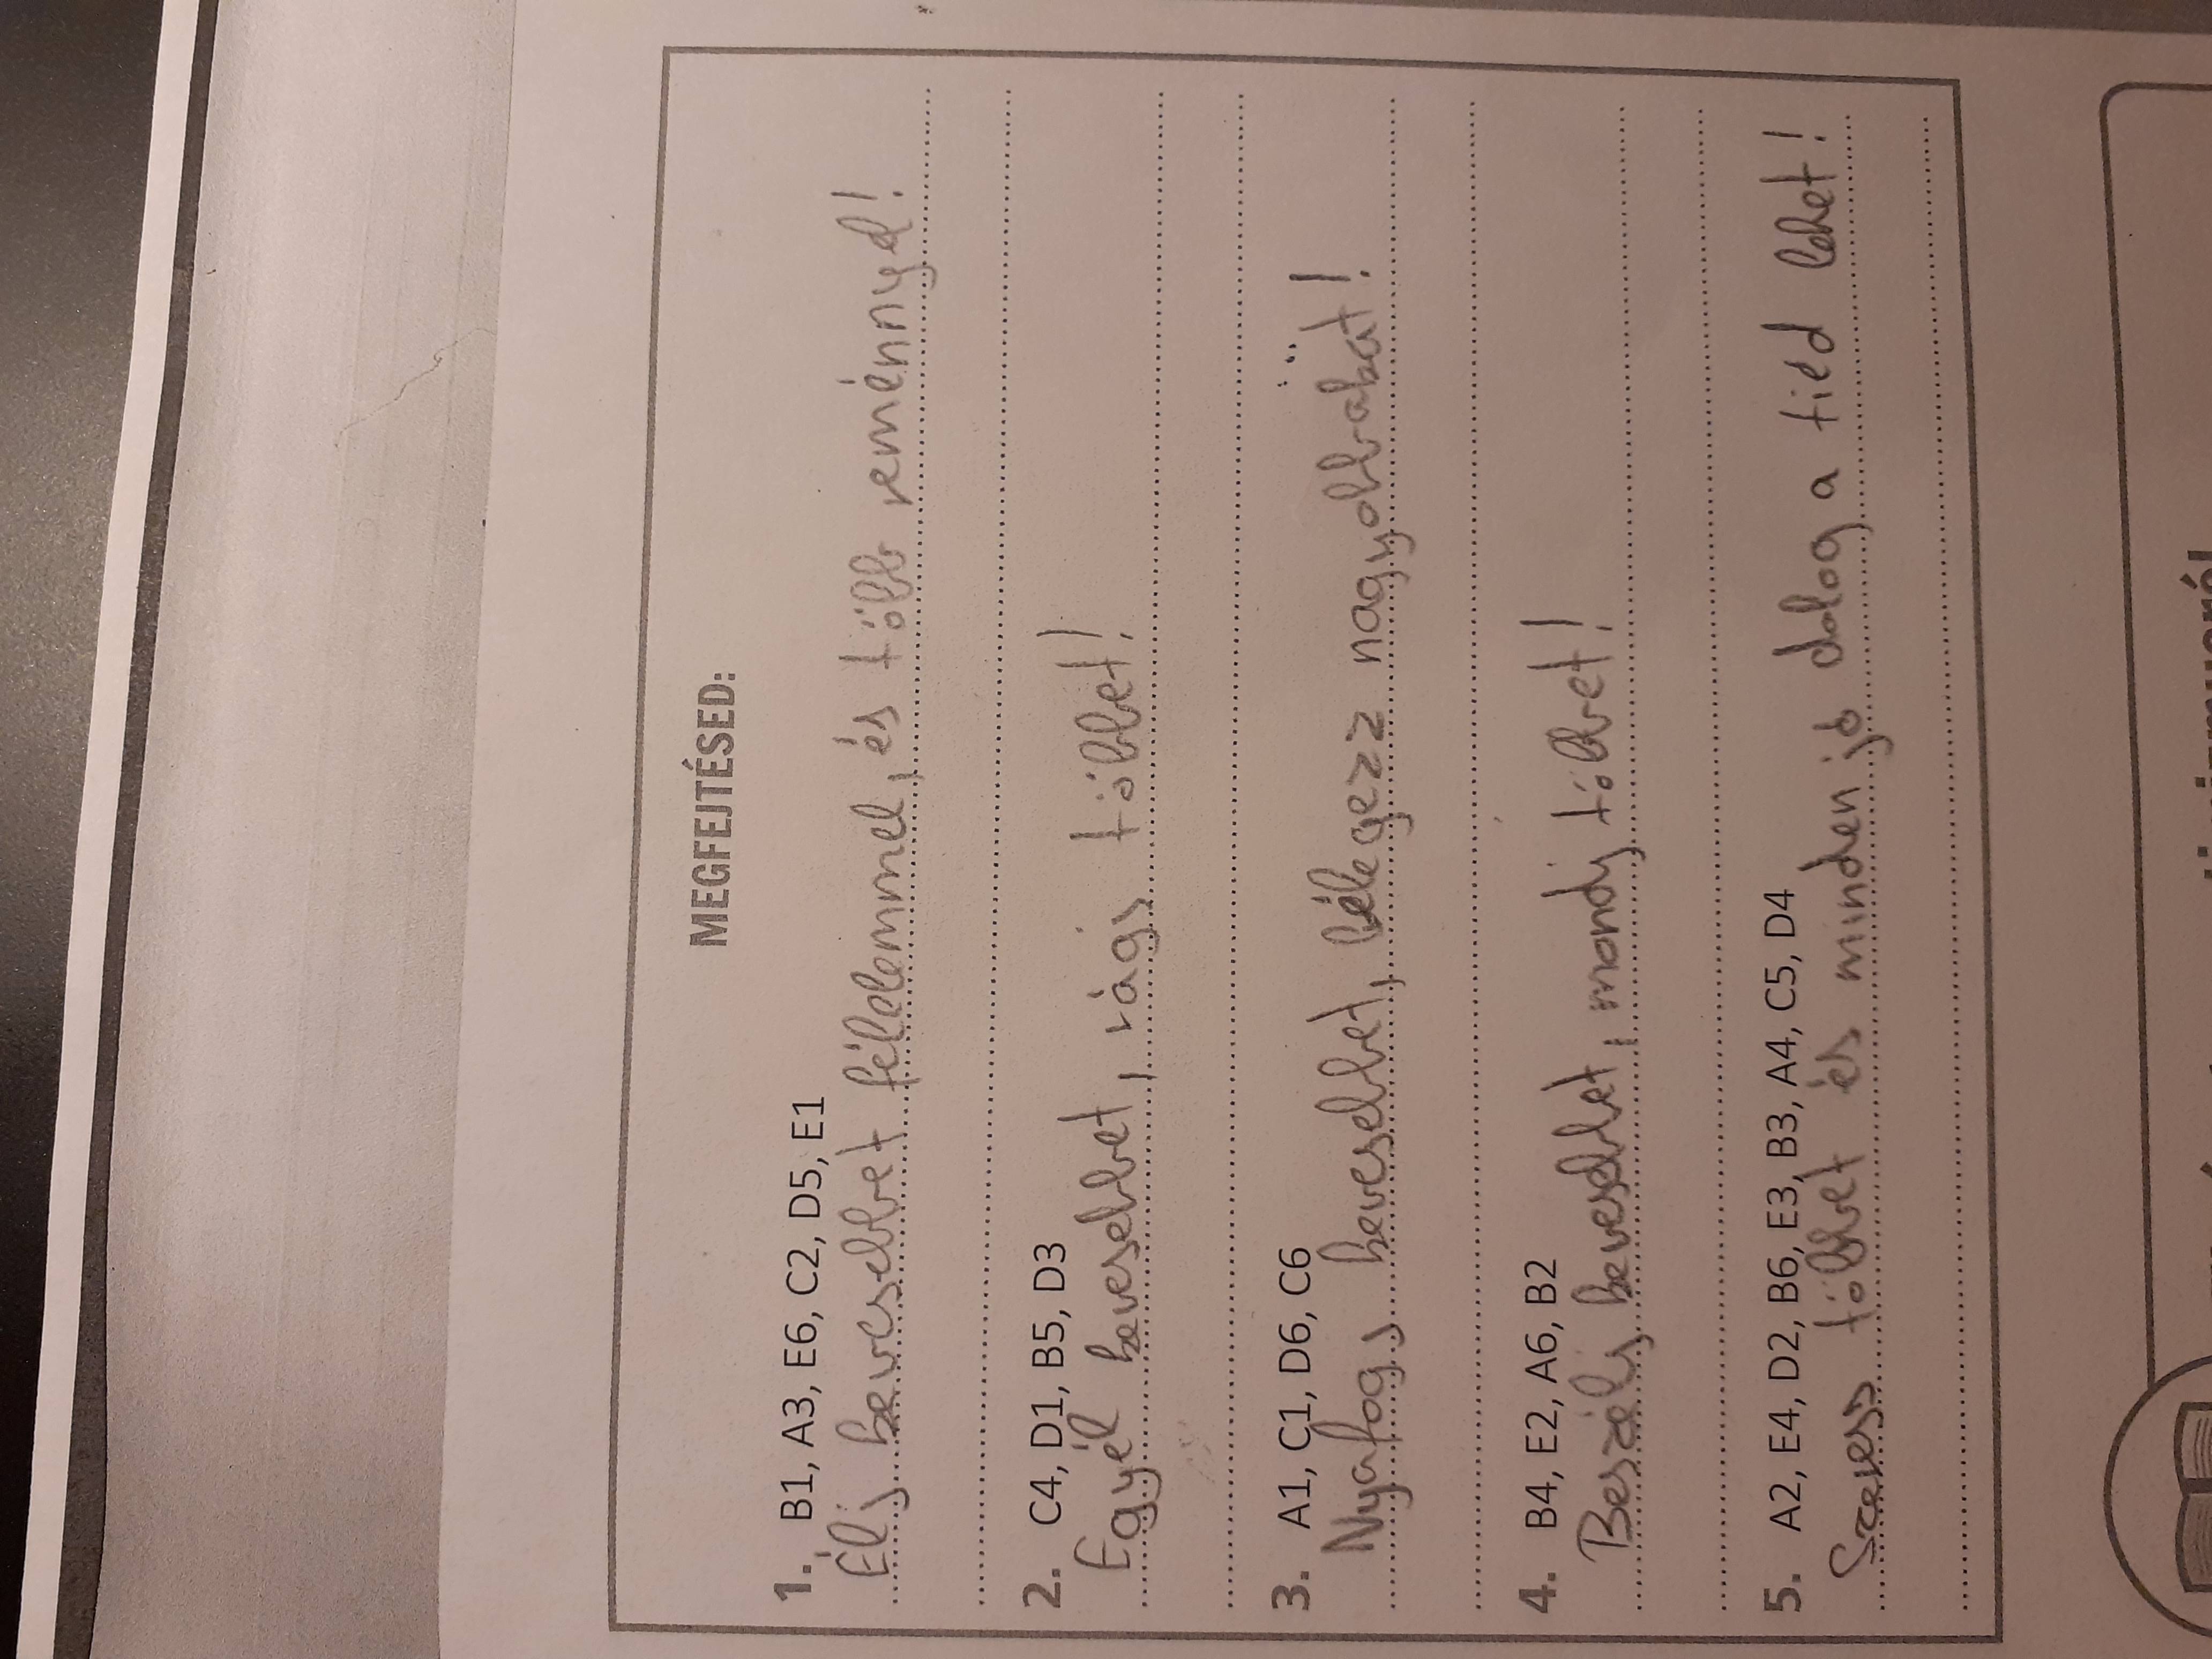 MEGFEJTÉSED:
1. B1, A3, E6, C2, D5, E1
Élj kevesebbet félelemmel, és több reménnyel!
2. C4, D1, B5, D3
Egyél kevesebbet, rágj többet!
3. A1, C1, D6, C6
Nyafogj kevesebbet, lélegezz nagyobbakat!
4. B4, E2, A6, B2
Beszélj kevesebbet, mondj többet!
5. A2, E4, D2, B6, E3, B3, A4, C5, D4
Szeress többet és minden jó dolog a tied lehet!